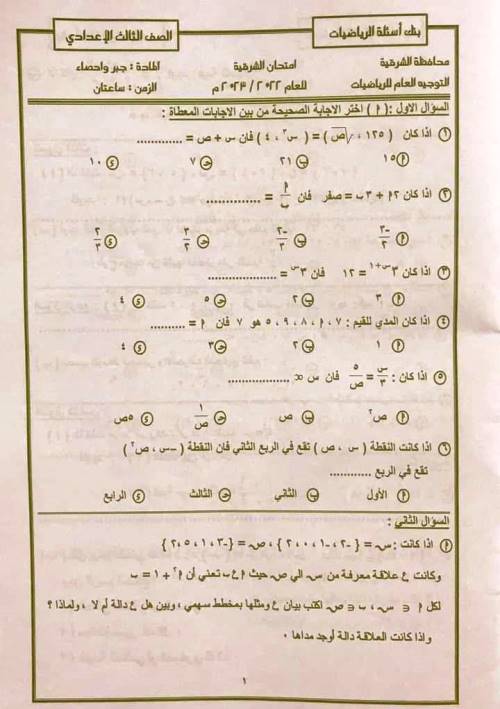 بنك أسئلة الرياضيات
الصف الثالث الإعدادي
محافظة الشرقية
امتحان الشرقية
المادة : جبر واحصاء
التوجيه العام للرياضيات
للعام ٢٠٢٢ / ٢٠٢٣ م
الزمن : ساعتان
السؤال الاول : ( ٩ ) اختر الاجابة الصحيحة من بين الاجابات المعطاة :
١ اذا كان ( ١٢٥ ، √ص ) = ( س٣ ، ٤ ) فان س + ص = ............
أ ١٥ ب ٢١ ج ٧ د ١٠
٢ اذا كان ٢أ + ٣ب = صفر فان أ/ب = ..............
أ -٢/٣ ب -٣/٢ ج ٣/٢ د ٢/٣
٣ اذا كان ٣س+١ = ١٢ فان ٣س = ................
أ ٣ ب ٢ ج ٥ د ٤
٤ اذا كان المدي للقيم : ٧ ، أ ، ٨ ، ٩ ، ٥ هو ٧ فان أ = ..........
أ ١ ب ٢ ج ٣ د ٤
٥ اذا كان : س/٣ = ٥/ص فان س ∝ ................
أ ص٢ ب ص ج ١/ص د ٥ص
٦ اذا كانت النقطة ( س ، ص ) تقع في الربع الثاني فان النقطة ( –س ، ص٢ )
تقع في الربع ............
أ الأول ب الثاني ج الثالث د الرابع
السؤال الثاني :
أ اذا كانت : س = { -٢ ، -١ ، ٠ ، ٢ } ، ص = { -٣ ، ١ ، ٢ ، ٥ }
وكانت ع علاقة معرفة من س الي ص حيث أ ع ب تعني أن أ٢ + ١ = ب
لكل أ ∈ س ، ب ∈ ص اكتب بيان ع ومثلها بمخطط سهمي ، وبين هل ع دالة أم لا ، ولماذا ؟
واذا كانت العلاقة دالة أوجد مداها ٠
١